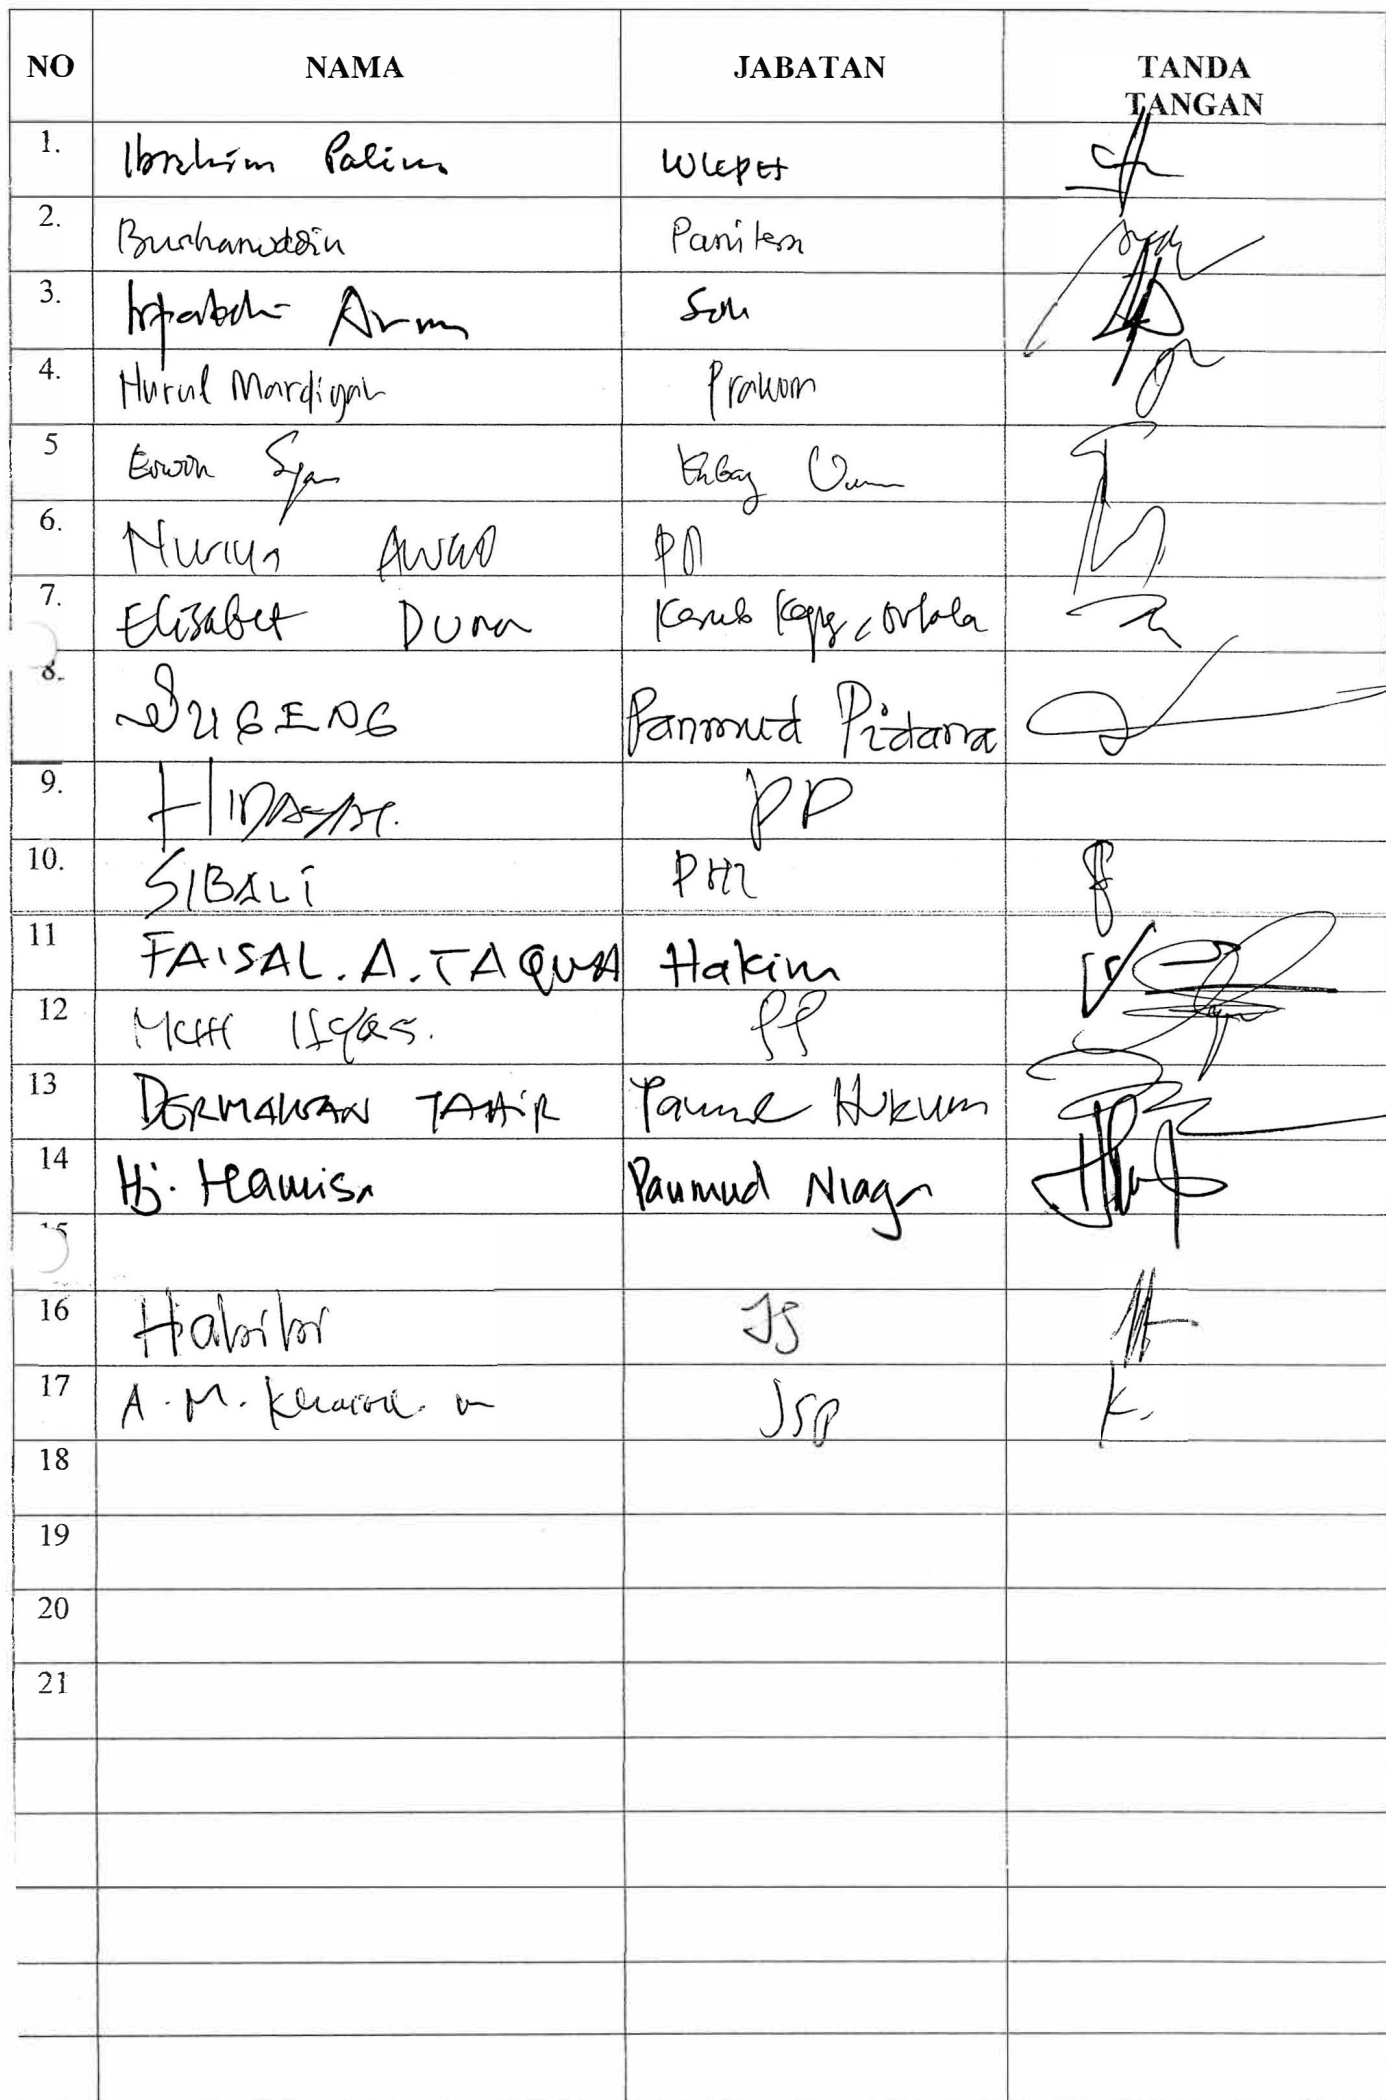 NO NAMA JABATAN TANDA
TANGAN
1. Ibrahim Palino WKPH
2. Burhanuddin Panitera
3. Arum
4. Nurul Mardiyah Prakom
5 Erwin Kabag
6. PP
7. Elisabet Duma Kasub Kepg, Ortala
8. SUGENG Panmud Pidana
9. HIDAYAT. PP
10. SIBALI PHI
11 FAISAL. A. TAQWA Hakim
12 MUH Ilyas. PP
13 DERMAWAN TAHIR Panmud Hukum
14 Hj. Hamisa Panmud Niaga
15
16 Habibi JS
17 A. M. JSP K.
18
19
20
21